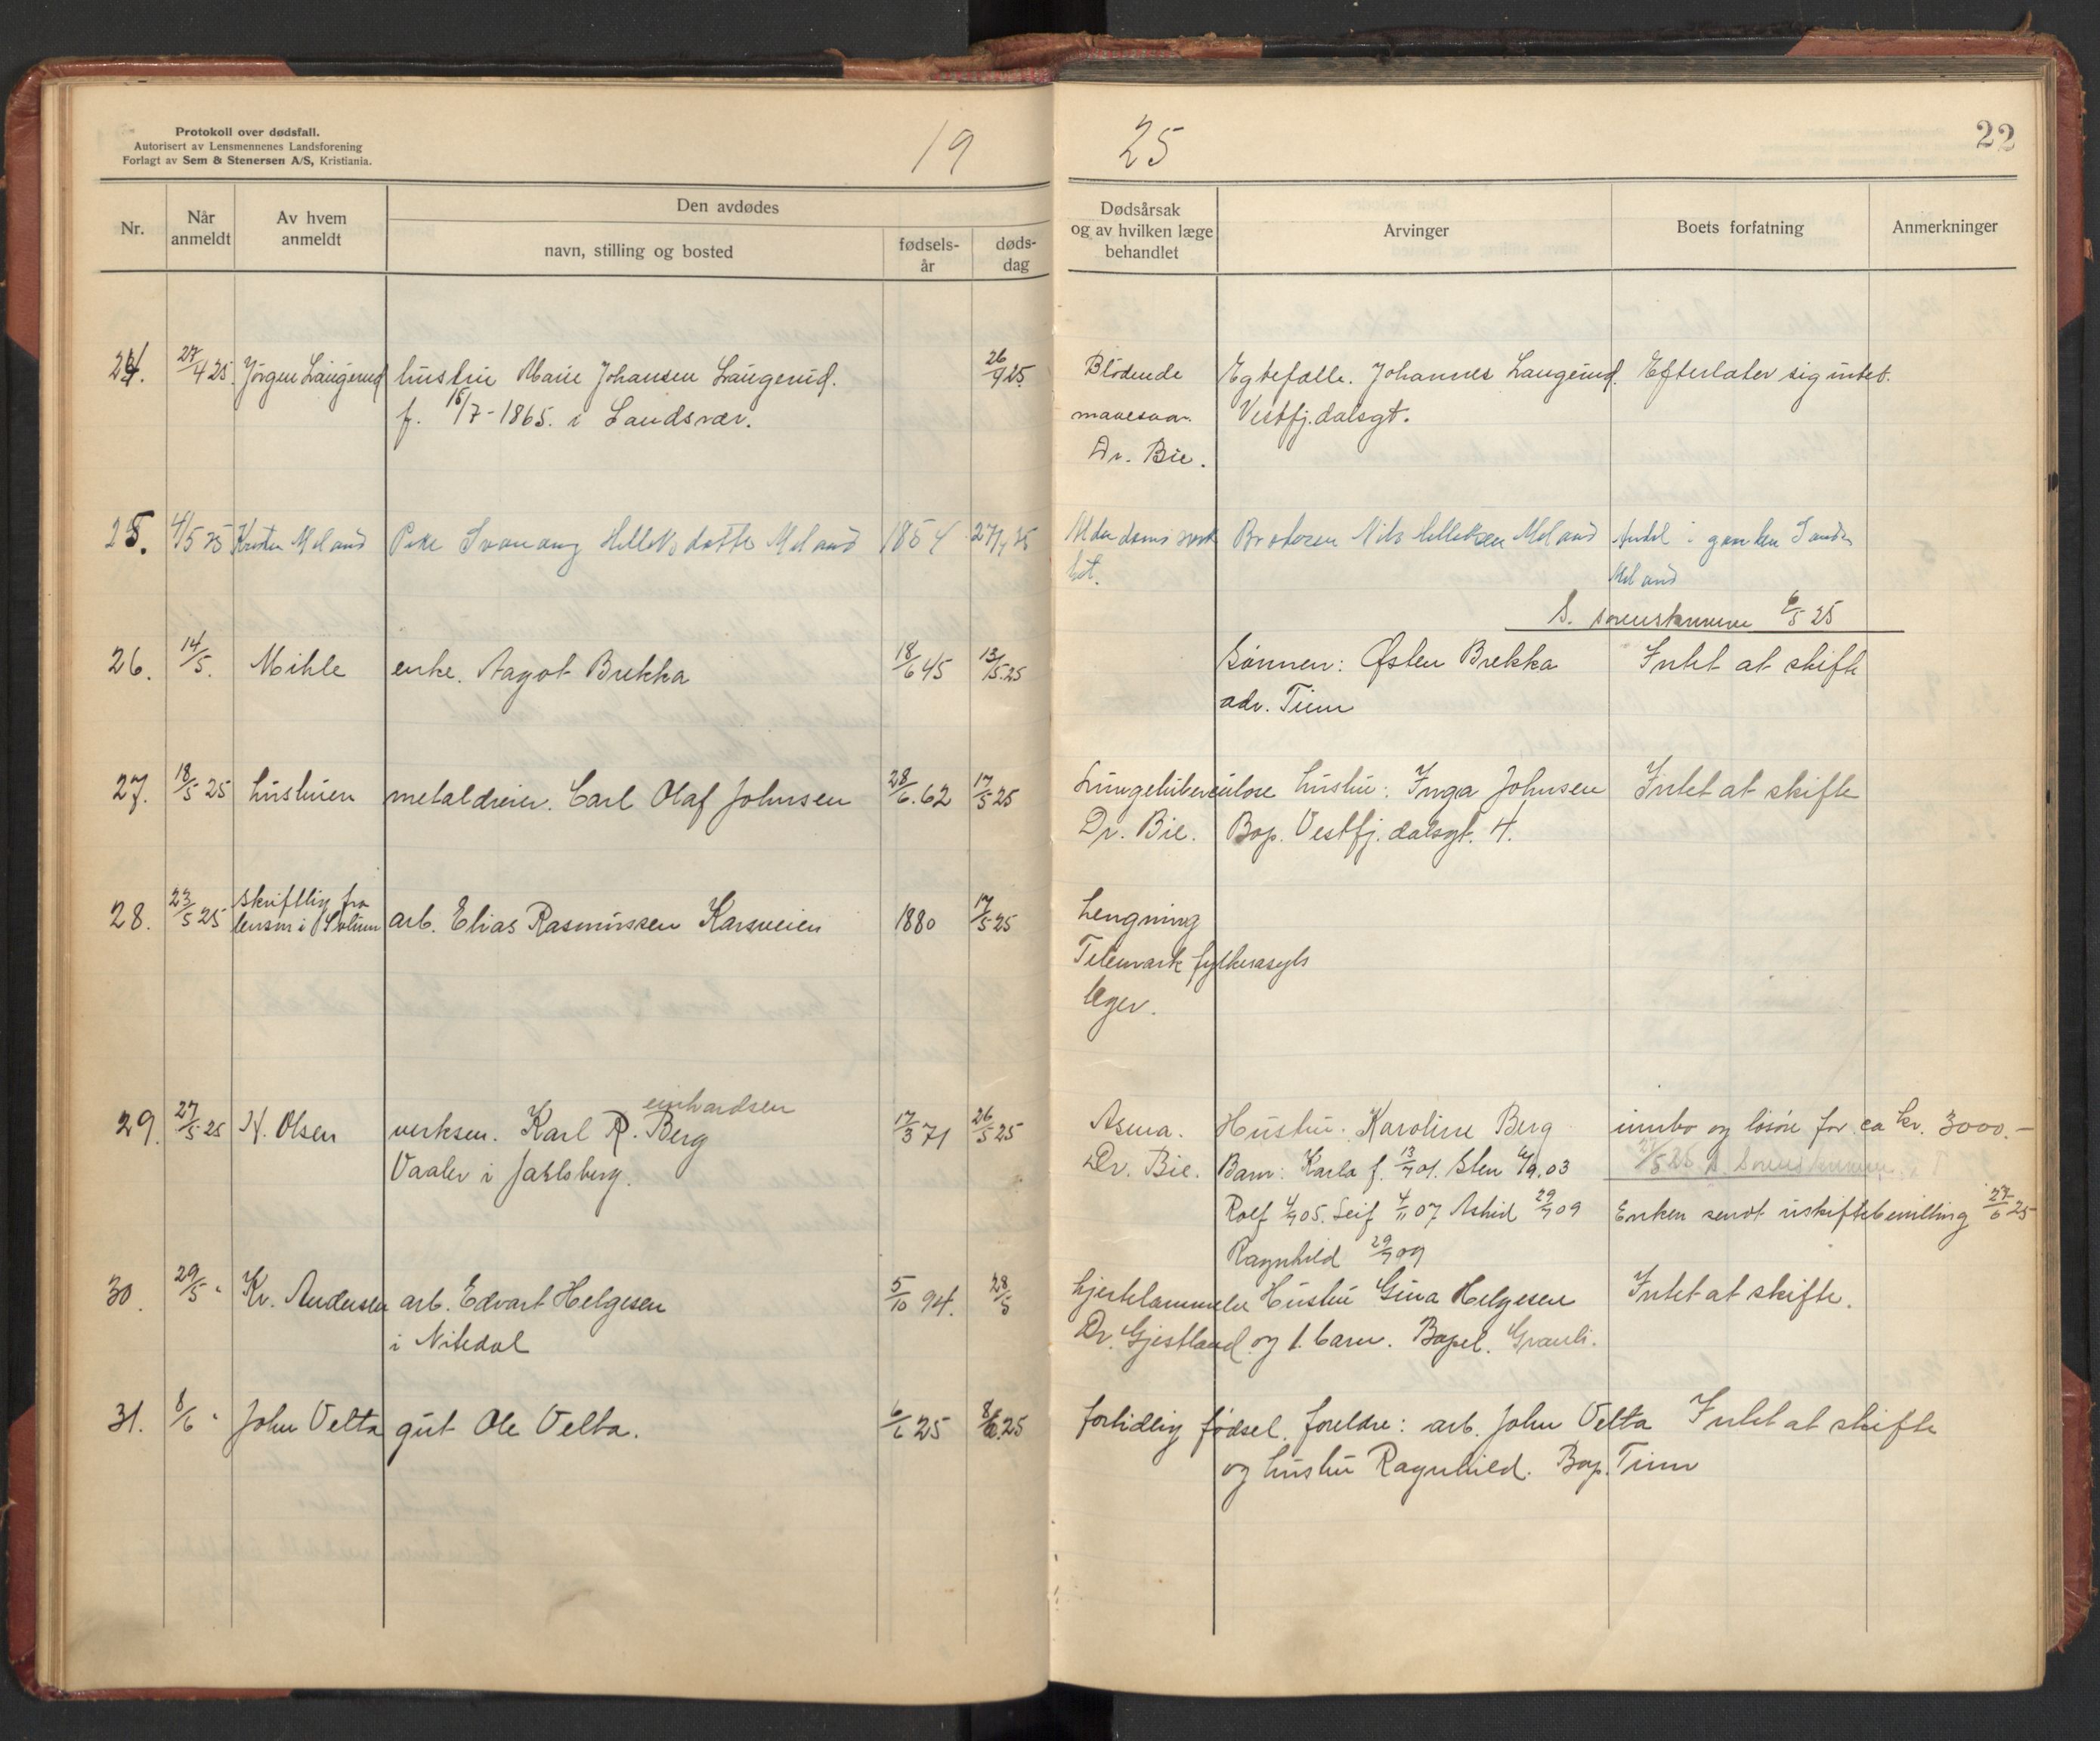 Protokoll over dødsfall.
Autorisert av Lensmennenes Landsforening
Forlagt av Sem & Stenersen A/S, Kristiania.
19 25
22
Nr.
Når anmeldt
Av hvem anmeldt
Den avdødes
navn, stilling og bosted
fødsels-år
døds-dag
Dødsårsak og av hvilken læge behandlet
Arvinger
Boets forfatning
Anmerkninger
24. 27/4 25. Jörgen Laugerud hustru Marie Johansen Laugerud. 26/4 25 Blödende Egtefælle. Johannes Laugerud. Efterlater sig intet.
f. 15/7-1865. i Sandsvær. mavesaar. Vestfj.dalsgt.
Dr. Bie.
25. 4/5 25 Meland Pike Svanaug Helleksdatter Meland 1854 27/4 25 Alderdomssvak Broderen Nils Helleksen Meland Andel i gaarden
het. Meland
S. sorenskriveren 6/5 25
26. 14/5. Mihle enke. Aagot Brekka 18/6 45 13/5.25 Sönnen: Østen Brekka Intet at skifte
adr. Tinn
27. 18/5 25 hustruen metaldreier. Carl Olaf Johnsen 28/6.62 17/5 25 Lungetuberculose hustru: Inga Johnsen Intet at skifte
Dr. Bie. Bop. Vestfj.dalsgt. 4.
28. 23/5 25 skriftlig fra
lensm i Solum arb. Elias Rasmussen 1880 17/5 25 hengning
Telemark fylkesasyls
læger.
einhardsen
29. 27/5 25 N. Olsen verksm. Karl R. Berg 17/3 71 26/5 25 Asma. Hustru. Karoline Berg innbo og lösöre for ca kr. 3000.-
Vaaler i Jarlsberg. Dr. Bie. Barn: Karla f. 13/7 01. Sten 6/9.03 27/5 25 S. Sorenskriveren
Rolf 4/9 05. Leif 4/11 07 Astrid 29/7 09 Enken sendt uskiftebevilling 27/6 25
Ragnhild 29/7 09
30. 29/5 " Kr. Andersen arb. Edvart Helgesen 5/10 94. 28/5 hjertelammelse Hustru Gina Helgesen Intet at skifte.
i Nitedal Dr. Gjestland og 1. barn. Bopel. Grauli.
31. 8/6 " John Velta gut Ole Velta. 6/6 25 8/6.25 fortidlig födsel. foreldre: arb. John Velta Intet at skifte
og hustru Ragnhild. Bop. Tinn